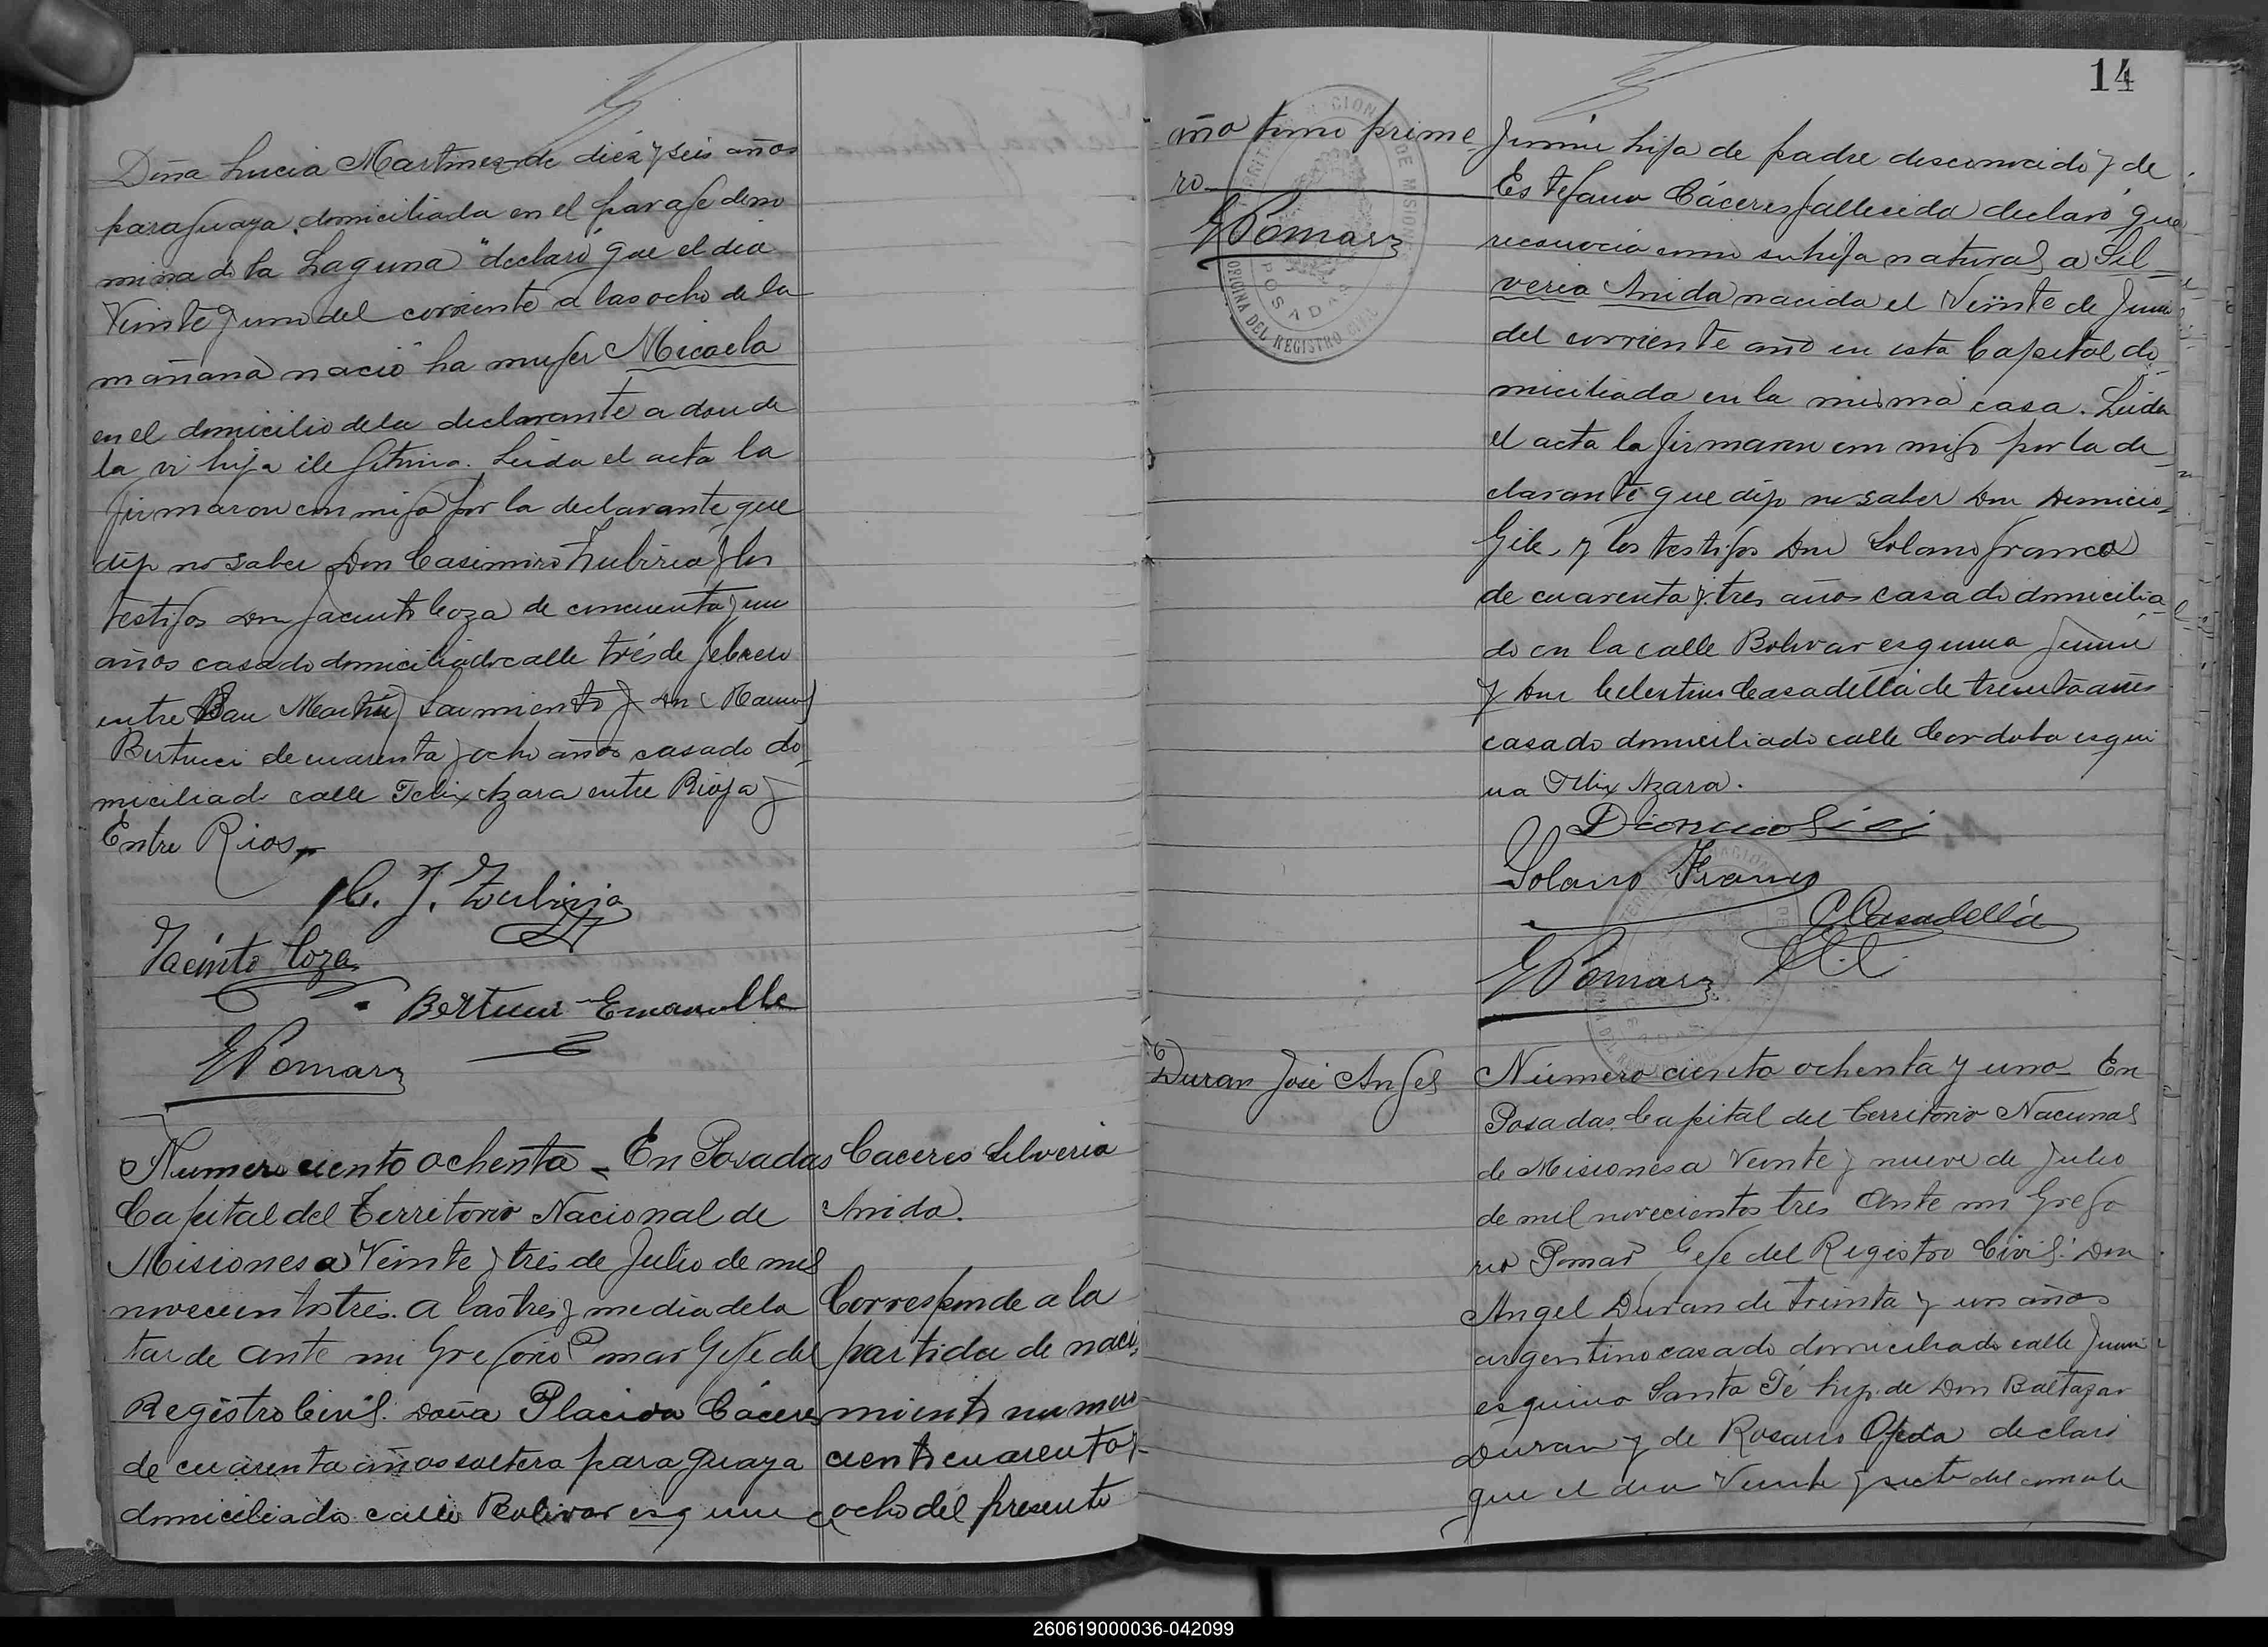 Doña Lucia Martinez de diez y seis años
paraguaya, domiciliada en el paraje deno
minado la Laguna" declaró que el dia
Veinte y uno del corriente a las ocho de la
mañana nació la mujer Micaela
en el domicilio de la declarante a donde
la vi hija ilegitima. Leida el acta la
firmaron conmigo por la declarante que
dijo no saber Don Casimiro Zubiria y los
testigos Don Jacinto Coza de cincuenta y un
años casado domiciliado calle trés de febrero
entre San Martin y Sarmiento y Don Manuel
Bertucci de cuarenta y ocho años casado do
miciliado calle Felix Azara entre Rioja y
Entre Rios
C. J. Zubiria
Jacinto Coza
Bertucci Emanuelle
G Pomar
Numero ciento ochenta - En Posadas
Capital del Territorio Nacional de
Misiones a Veinte y tres de Julio de mil
novecientos tres. a las tres y media de la
tarde ante mi Gregorio Pomar Gefe del
Registro Civil. Doña Placida Cáceres
de cuarenta años soltera paraguaya
domiciliada calle Bolivar esquina
Caceres Silveria
Anida.
Corresponde a la
partida de naci
miento numero
ciento cuarenta y
ocho del presente
14
año tomo prime
ro
G Pomar
OFICINA DEL REGISTRO CIVIL
POSADAS
Junin hija de padre desconocido y de
Estefana Cáceres fallecida declaró que
reconocia como su hija natural a Sil
veria Anida nacida el Veinte de Junio
del corriente año en esta Capital do
miciliada en la misma casa. Leida
el acta la firmaron conmigo por la de
clarante que dijo no saber Don Dionicio
Gile, y los testigos Don Solano Franco
de cuarenta y tres años casado domicilia
do en la calle Bolivar esquina Junin
y Don Celestino Casadellá de treinta años
casado domiciliado calle Cordoba esqui
na Felix Azara.
Dionicio
Solano Franco
C Casadellá
G Pomar
Duran José Angel
Número ciento ochenta y uno - En
Posadas Capital del Territorio Nacional
de Misiones a Veinte y nueve de Julio
de mil novecientos tres Ante mi Grego
rio Pomar Gefe del Registro Civil: Don
Angel Duran de treinta y un años
argentino casado domiciliado calle Junin
esquina Santa Fé hijo de Don Baltazar
Duran y de Rosario Ojeda declaró
que el dia Veinte y siete del corriente
260619000036-042099